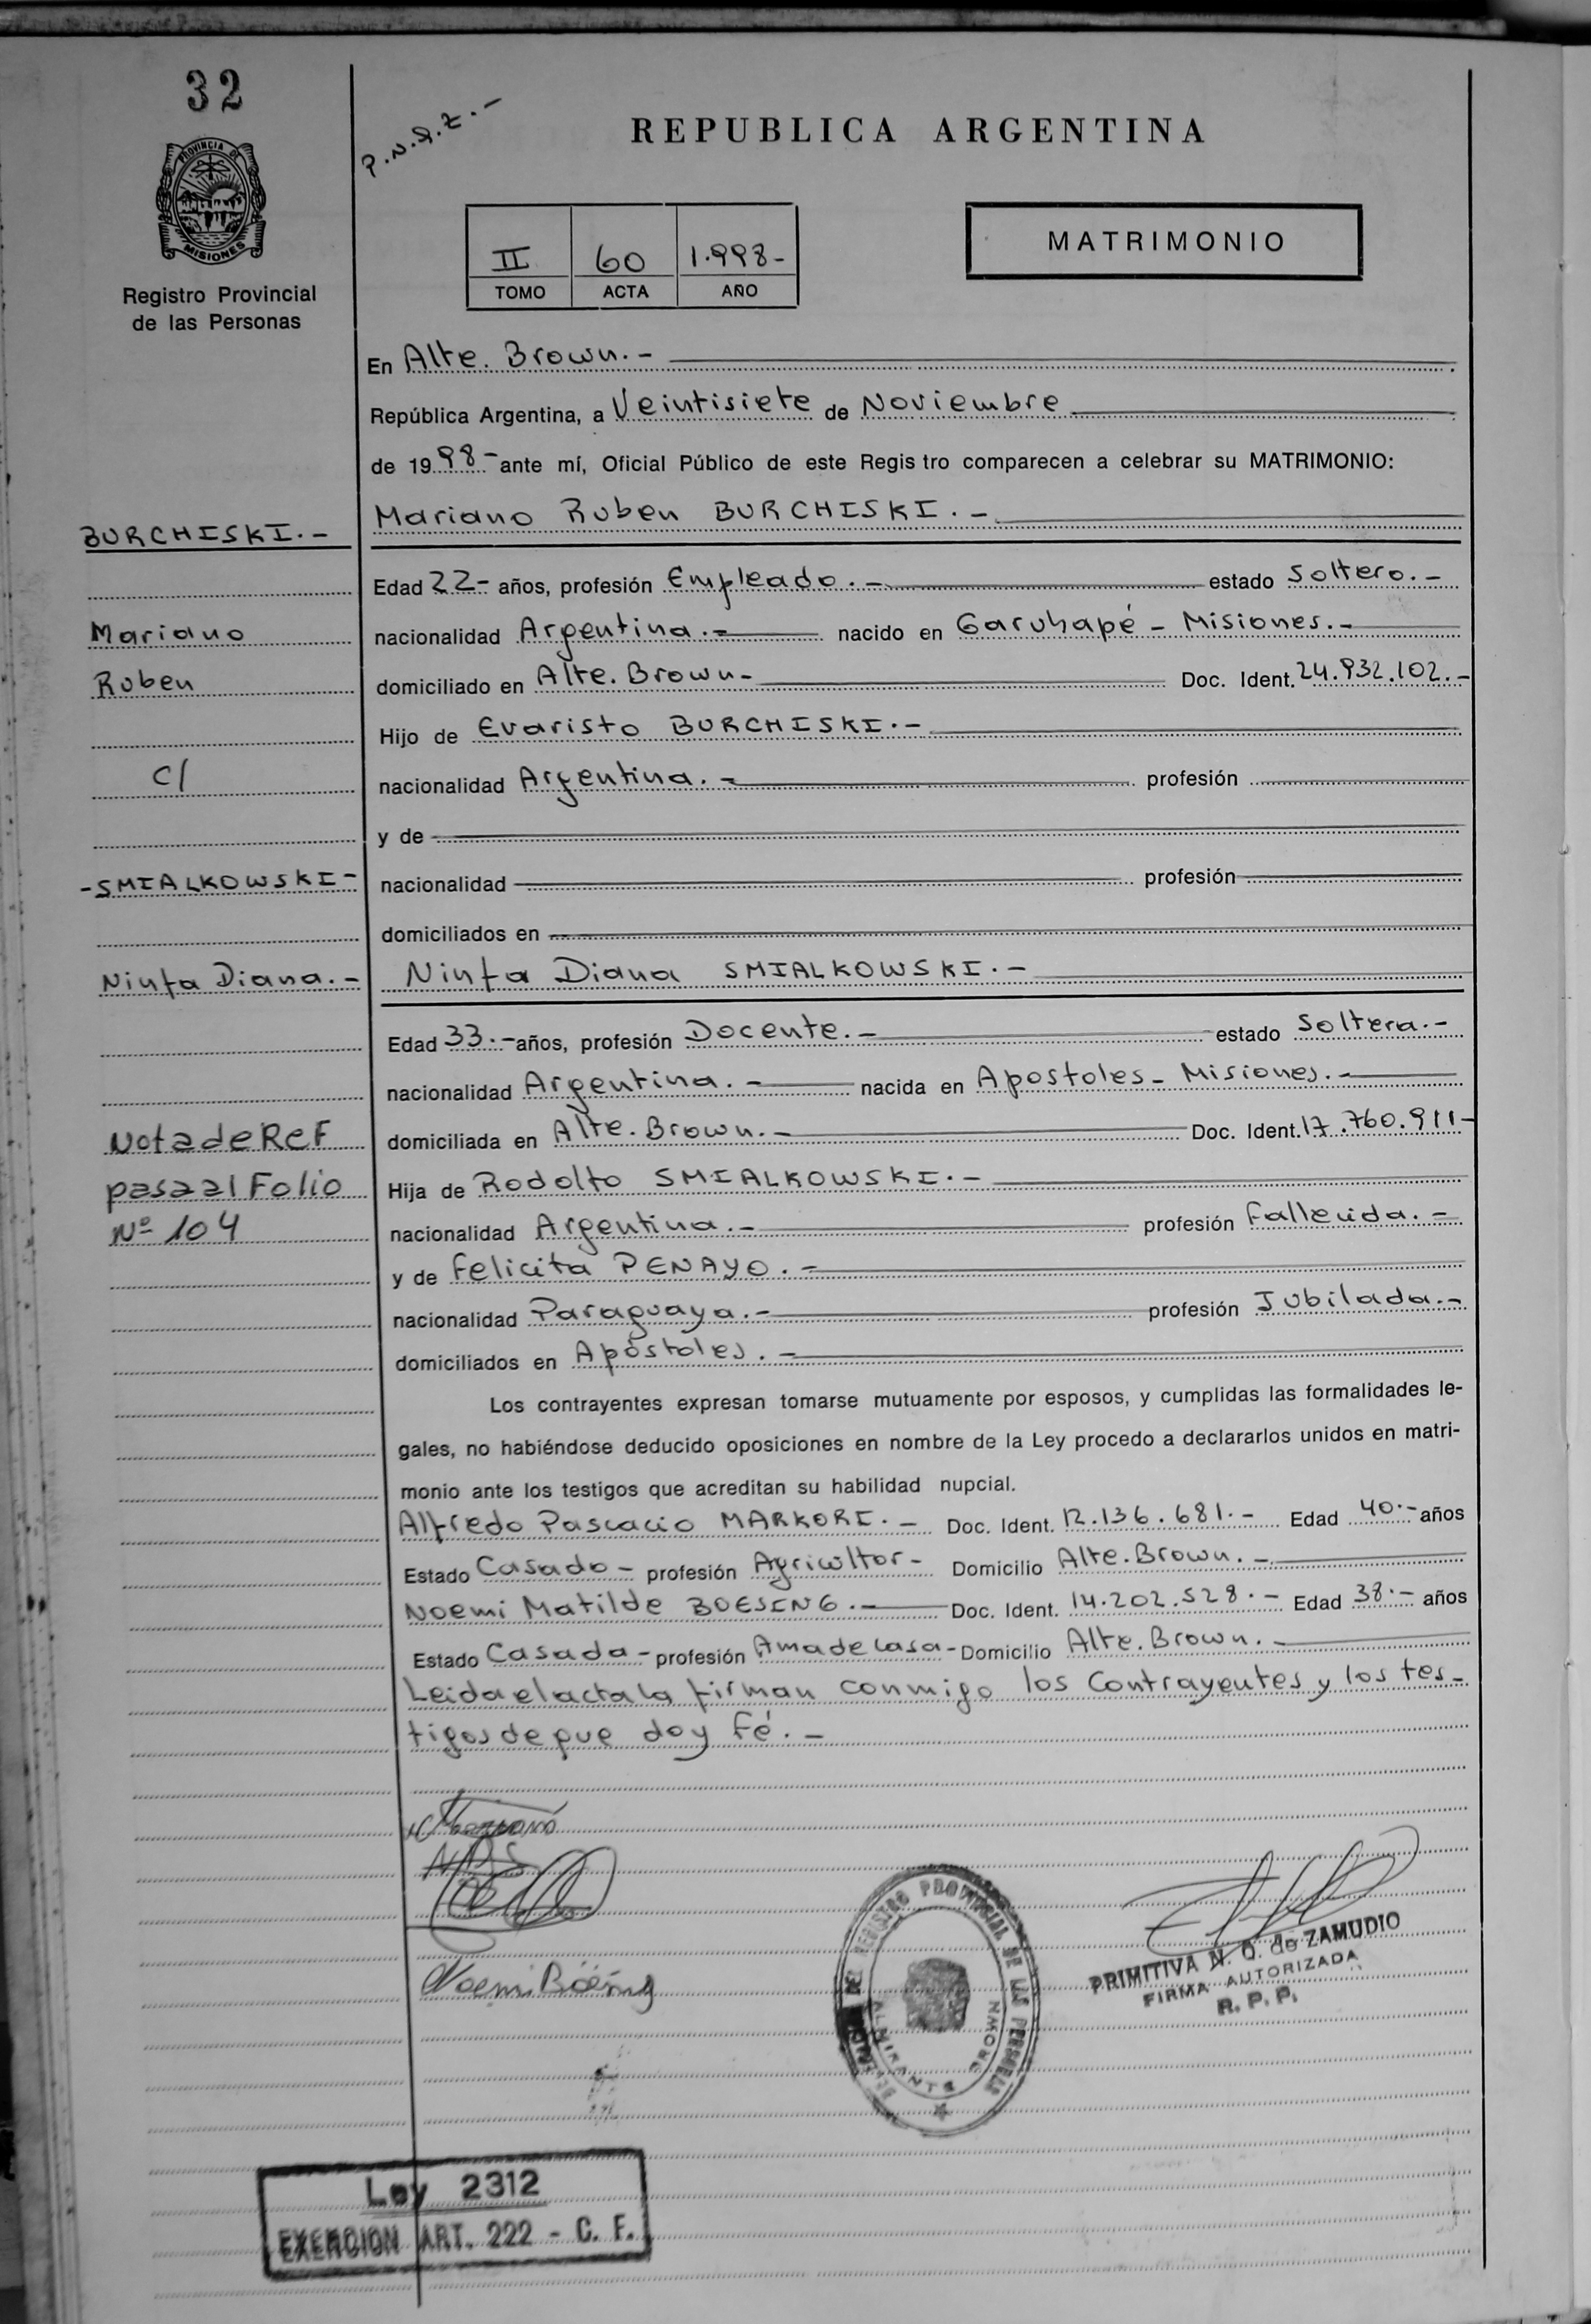 32
P.N.Q.Z.-
REPUBLICA ARGENTINA
PROVINCIA DE
MISIONES
II 60 1.998-
TOMO ACTA AÑO
MATRIMONIO
Registro Provincial
de las Personas
En Alte. Brown.-
República Argentina, a Veintisiete de Noviembre
de 1998- ante mí, Oficial Público de este Regis tro comparecen a celebrar su MATRIMONIO:
BURCHISKI.- Mariano Ruben BURCHISKI.-
Edad 22- años, profesión Empleado.- estado Soltero.-
Mariano nacionalidad Argentina.- nacido en Garuhapé - Misiones.-
Ruben domiciliado en Alte. Brown- Doc. Ident. 24.932.102.-
Hijo de Evaristo BURCHISKI.-
C/ nacionalidad Argentina.- profesión
y de
-SMIALKOWSKI- nacionalidad profesión
domiciliados en
Ninfa Diana.- Ninfa Diana SMIALKOWSKI.-
Edad 33.- años, profesión Docente.- estado Soltera.-
nacionalidad Argentina.- nacida en Apostoles- Misiones.-
Nota de Ref domiciliada en Alte. Brown.- Doc. Ident. 17.760.911-
pasa al Folio Hija de Rodolfo SMIALKOWSKI.-
Nº 104 nacionalidad Argentina.- profesión Fallecida.-
y de Felicita PENAYO.-
nacionalidad Paraguaya.- profesión Jubilada.-
domiciliados en Apóstoles.-
Los contrayentes expresan tomarse mutuamente por esposos, y cumplidas las formalidades le-
gales, no habiéndose deducido oposiciones en nombre de la Ley procedo a declararlos unidos en matri-
monio ante los testigos que acreditan su habilidad nupcial.
Alfredo Pascacio MARKORI.- Doc. Ident. 12.136.681.- Edad 40.- años
Estado Casado- profesión Agricultor- Domicilio Alte. Brown.-
Noemi Matilde BOESING.- Doc. Ident. 14.202.528.- Edad 38.- años
Estado Casada- profesión Ama de casa- Domicilio Alte. Brown.-
Leida el acta la firman conmigo los Contrayentes y los tes-
tigos de que doy Fé.-
N.D.S
Noemi Böesing
REGISTRO PROVINCIAL DE LAS PERSONAS
ALMIRANTE BROWN
PRIMITIVA N. O. de ZAMUDIO
FIRMA AUTORIZADA
R. P. P.
Ley 2312
EXENCION ART. 222 - C. F.